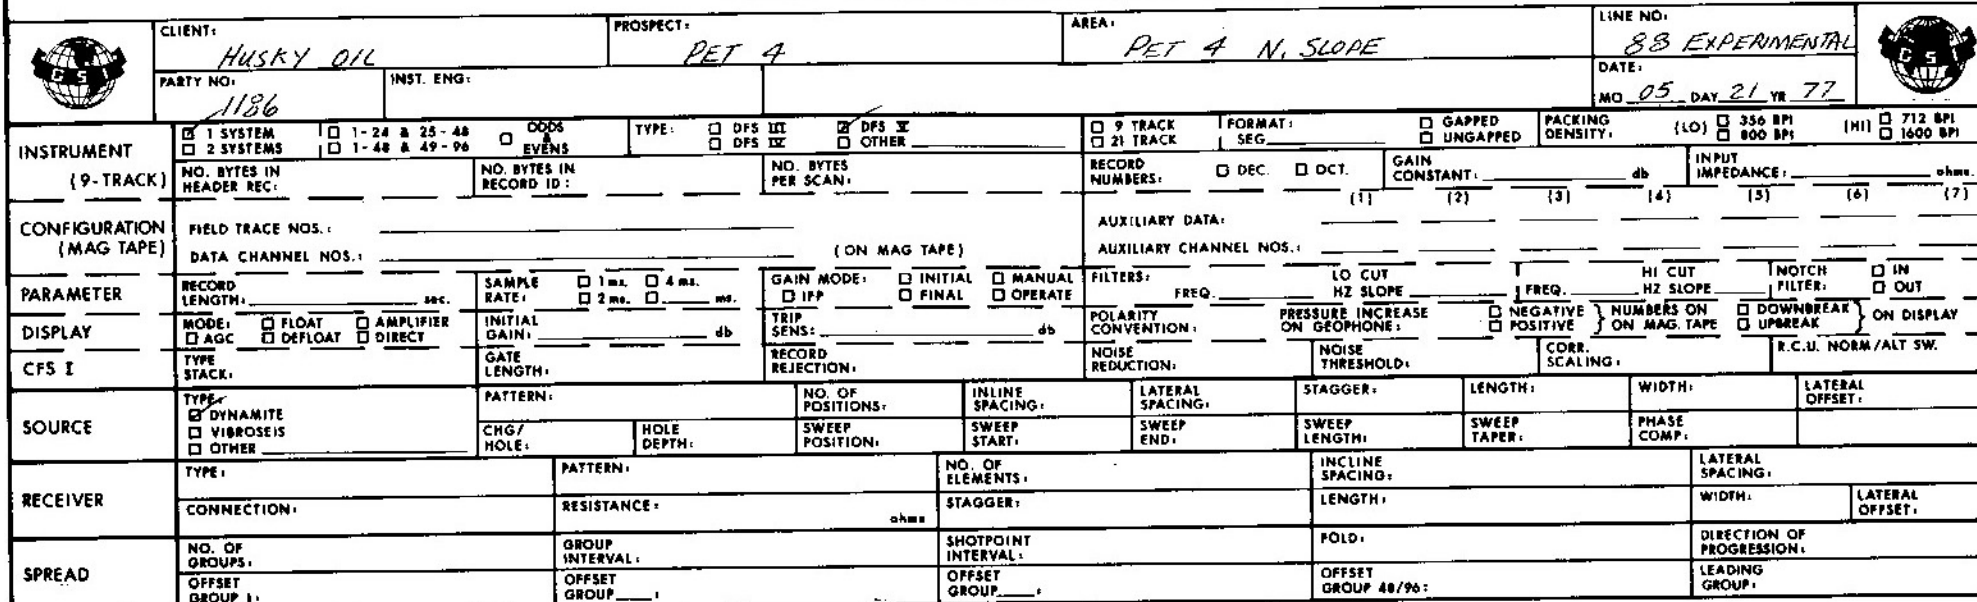 CLIENT: HUSKY OIL PROSPECT: PET 4 AREA: PET 4 N. SLOPE LINE NO: 88 EXPERIMENTAL
GSI
PARTY NO: 1186 INST. ENG: DATE: MO 05 DAY 21 YR 77
GSI
INSTRUMENT (9-TRACK)
☑ 1 SYSTEM ☐ 1-24 & 25-48 ☐ ODDS & EVENS TYPE: ☐ DFS III ☑ DFS V ☐ 9 TRACK FORMAT: ☐ GAPPED PACKING DENSITY: (LO) ☐ 356 BPI (HI) ☐ 712 BPI
☐ 2 SYSTEMS ☐ 1-48 & 49-96 ☐ DFS IV ☐ OTHER ☐ 21 TRACK SEG ☐ UNGAPPED ☐ 800 BPI ☐ 1600 BPI
NO. BYTES IN HEADER REC: NO. BYTES IN RECORD ID: NO. BYTES PER SCAN: RECORD NUMBERS: ☐ DEC. ☐ OCT. GAIN CONSTANT: db INPUT IMPEDANCE: ohms.
CONFIGURATION (MAG TAPE)
(1) (2) (3) (4) (5) (6) (7)
FIELD TRACE NOS.: AUXILIARY DATA:
DATA CHANNEL NOS.: (ON MAG TAPE) AUXILIARY CHANNEL NOS.:
PARAMETER
RECORD LENGTH: sec. SAMPLE RATE: ☐ 1 ms. ☐ 4 ms. ☐ 2 ms. ☐ ms. GAIN MODE: ☐ INITIAL ☐ MANUAL ☐ IFP ☐ FINAL ☐ OPERATE FILTERS: FREQ. LO CUT HZ SLOPE FREQ. HI CUT HZ SLOPE NOTCH FILTER: ☐ IN ☐ OUT
DISPLAY
MODE: ☐ FLOAT ☐ AMPLIFIER ☐ AGC ☐ DEFLOAT ☐ DIRECT INITIAL GAIN: db TRIP SENS: db POLARITY CONVENTION: PRESSURE INCREASE ON GEOPHONE: ☐ NEGATIVE ☐ POSITIVE } NUMBERS ON ON MAG. TAPE ☐ DOWNBREAK ☐ UPBREAK } ON DISPLAY
CFS I
TYPE STACK: GATE LENGTH: RECORD REJECTION: NOISE REDUCTION: NOISE THRESHOLD: CORR. SCALING: R.C.U. NORM/ALT SW.
SOURCE
TYPE: ☑ DYNAMITE ☐ VIBROSEIS ☐ OTHER
PATTERN: NO. OF POSITIONS: INLINE SPACING: LATERAL SPACING: STAGGER: LENGTH: WIDTH: LATERAL OFFSET:
CHG/HOLE: HOLE DEPTH: SWEEP POSITION: SWEEP START: SWEEP END: SWEEP LENGTH: SWEEP TAPER: PHASE COMP:
RECEIVER
TYPE: PATTERN: NO. OF ELEMENTS: INCLINE SPACING: LATERAL SPACING:
CONNECTION: RESISTANCE: ohms STAGGER: LENGTH: WIDTH: LATERAL OFFSET:
SPREAD
NO. OF GROUPS: GROUP INTERVAL: SHOTPOINT INTERVAL: FOLD: DIRECTION OF PROGRESSION:
OFFSET GROUP 1: OFFSET GROUP : OFFSET GROUP : OFFSET GROUP 48/96: LEADING GROUP: